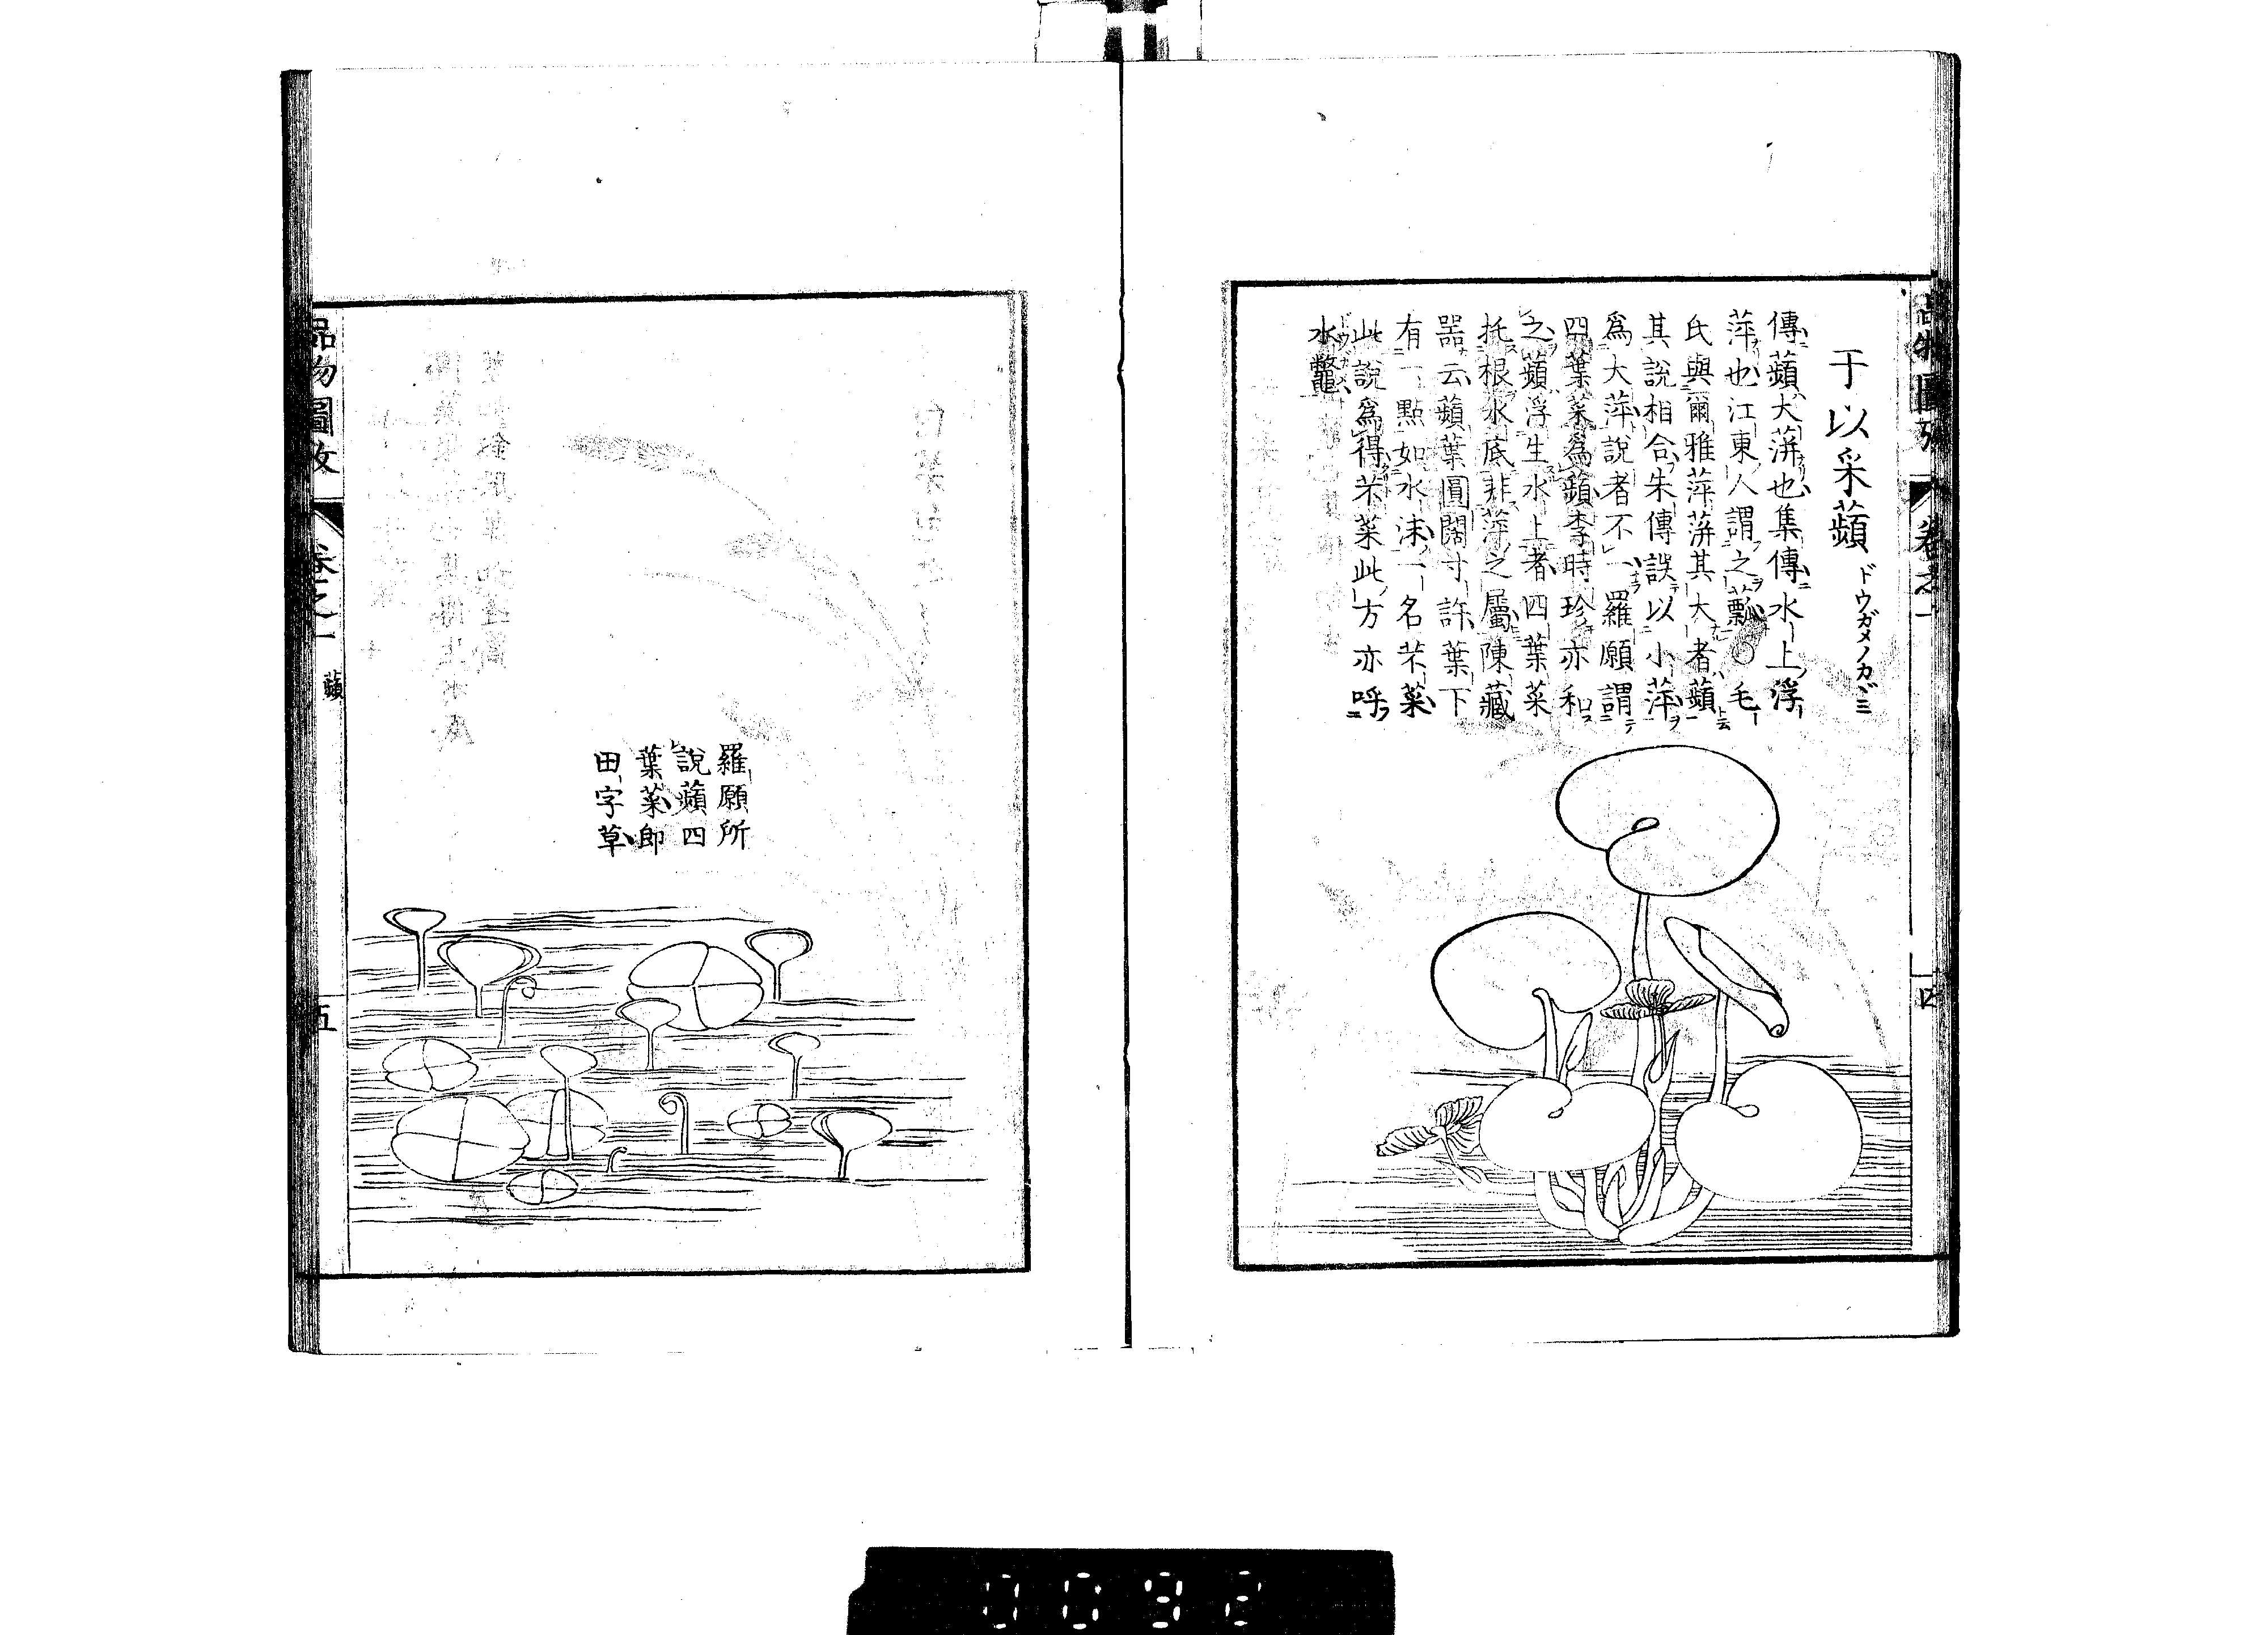 于以采蘋 ドウガメノカヾミ
傳蘋大蓱也集傳水上浮
萍也江東人謂之薸○毛
氏與爾雅萍蓱其大者蘋
其説相合朱傳誤以小萍
爲大萍説者不一羅願謂
四葉菜爲蘋李時珍亦和
之蘋浮生水上者四葉菜
托根水底非萍之屬陳藏
器云蘋葉圓闊寸許葉下
有一點如水沫一名芣菜
此説爲得芣菜此方亦呼
水鼈
品物圖攷 卷之一 四
羅願所
説蘋四
葉菜即
田字草
品物圖攷 卷之一 蘋 五